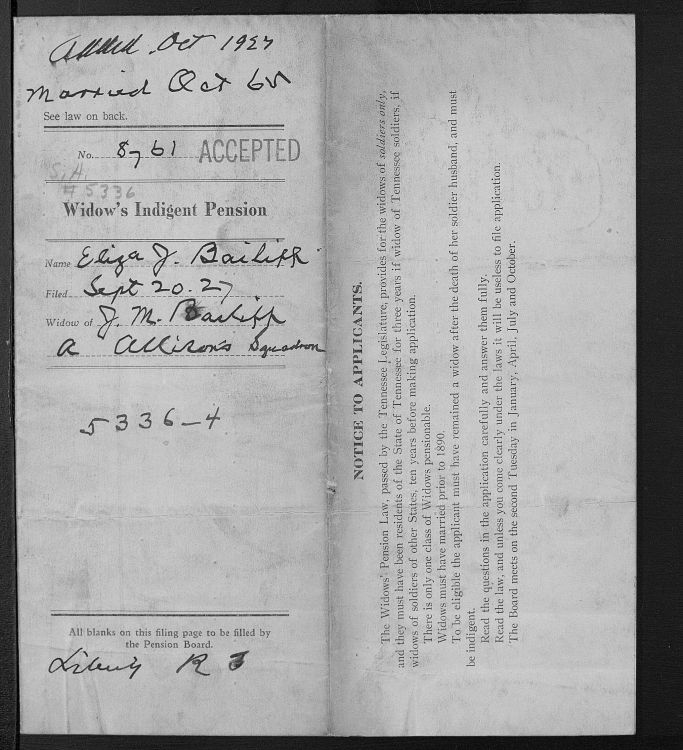 Added Oct 1927
Married Oct 65
See law on back.
No. 8761 ACCEPTED
S.A.
# 5336
Widow's Indigent Pension
Name Eliza J. Bailiff
Filed Sept 20-27
Widow of J. M. Bailiff
a Allisons Squadron
5336-4
All blanks on this filing page to be filled by
the Pension Board.
Liberty R 3
NOTICE TO APPLICANTS.
The Widows' Pension Law, passed by the Tennessee Legislature, provides for the widows of soldiers only,
and they must have been residents of the State of Tennessee for three years if widow of Tennessee soldiers, if
widows of soldiers of other States, ten years before making application.
There is only one class of Widows pensionable.
Widows must have married prior to 1890.
To be eligible the applicant must have remained a widow after the death of her soldier husband, and must
be indigent.
Read the questions in the application carefully and answer them fully.
Read the law, and unless you come clearly under the laws it will be useless to file application.
The Board meets on the second Tuesday in January, April, July and October.